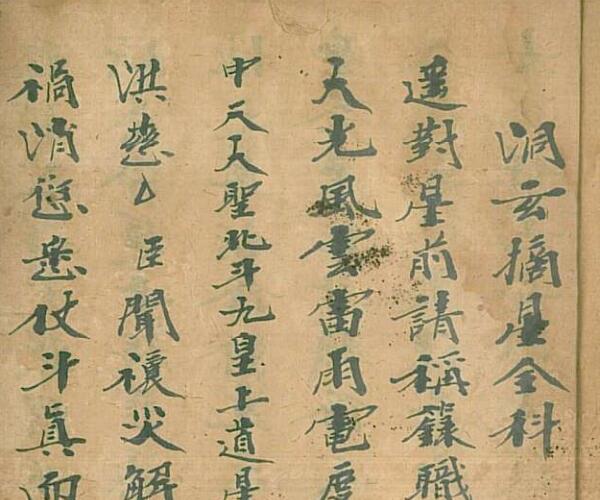 洞玄摘星全科
遥對星前請稱籙職
天光風雲雷雨電
中天大聖北斗九皇上道星
洪慈 臣聞禳災解
禍消愆悉仗斗真而